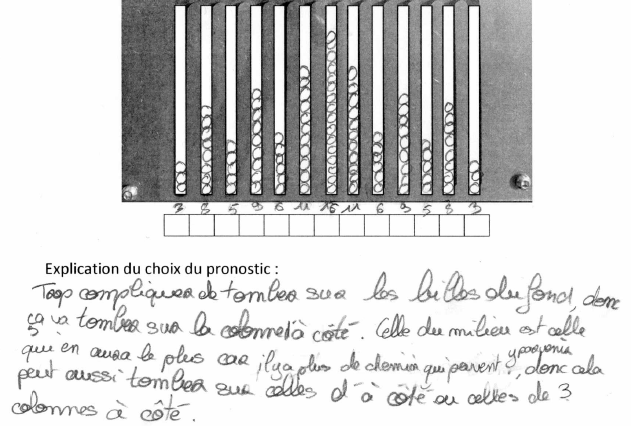 3 8 5 9 6 11 16 11 6 9 5 8 3
Explication du choix du pronostic :
Trop compliquer de tomber sur les billes du fond, donc
ça va tomber sur la colonne à côté. Celle du milieu est celle
qui en aura le plus car il y a plus de chemin qui peuvent y parvenir, donc cela
peut aussi tomber sur celles d'à côté ou celles de 3
colonnes à côté.